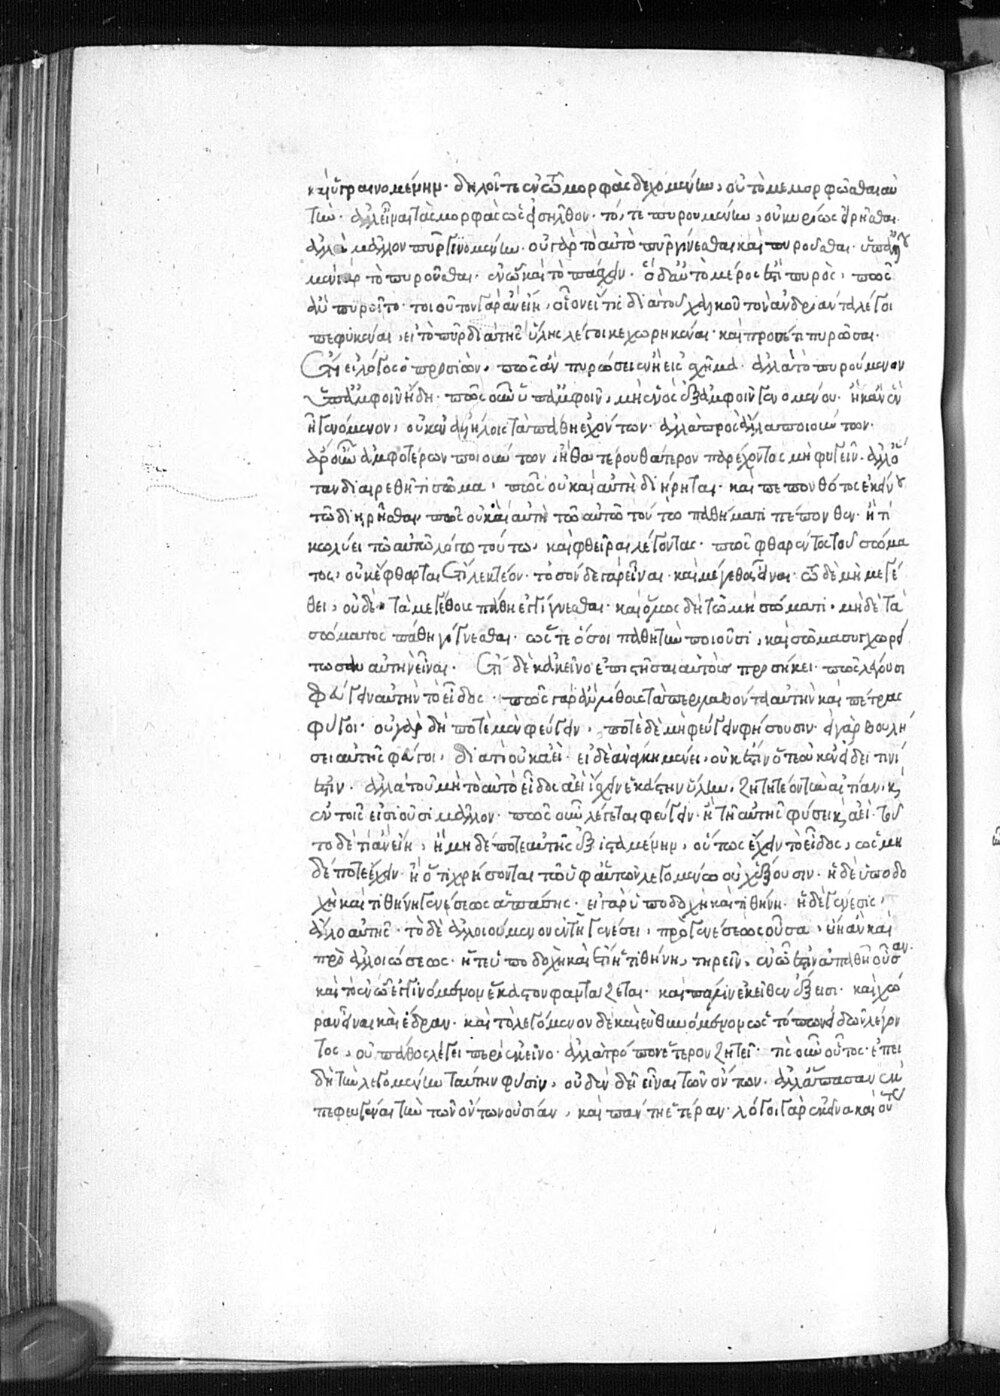 καὶ ὑγραινομένην· δηλοῖ τε ἐν ᾧ μορφὰς δεχομένην, οὐ τὸ μεμορφῶσθαι αὐ
τὴν· ἀλλ' εἶναι τὰς μορφὰς ὡς εἰσῆλθον· τό, τε πυρουμένην, οὐ κυρίως εἰρῆσθαι.
ἀλλὰ μᾶλλον πῦρ γινομένην· οὐ γὰρ τὸ αὐτὸ πῦρ γίνεσθαι καὶ πυροῦσθαι· ὑπ' ἄλλου
μὲν γὰρ τὸ πυροῦσθαι· ἐν ᾧ καὶ τὸ πάσχειν· ὃ δ' αὐτὸ μέρος ἐστὶ πυρὸς, πῶς
ἂν πυροῖτο· τοιοῦτον γὰρ ἂν εἴη, οἷον εἴ τις διὰ τοῦ χαλκοῦ τὸν ἀνδριάντα λέγοι
πεφυκέναι, εἰ τὸ πῦρ διὰ τῆς ὕλης λέγοι κεχωρηκέναι· καὶ προσέτι πυρῶσαι.
Ἔτι εἰ λόγος ὁ προσιὼν, πῶς ἂν πυρώσειεν ἢ εἰς σχῆμα· ἀλλὰ τὸ πυρούμενον
ὑπ' ἀμφοῖν ἤδη· πῶς οὖν ὑπ' ἀμφοῖν, μὴ ἑνὸς ἐξ ἀμφοῖν γενομένου· ἢ κἂν ἓν
ᾖ γενόμενον, οὐκ ἐν ἀλλήλοις τὰ πάθη ἐχόντων· ἀλλὰ πρὸς ἄλλα ποιούντων·
ἆρ' οὖν ἀμφοτέρων ποιούντων, ἢ θατέρου θάτερον παρέχοντος μὴ φυγεῖν· ἀλλ' ὅ
ταν διαιρεθῇ τι σῶμα, πῶς οὐ καὶ αὐτὴ διῄρηται· καὶ πεπονθότος ἐκείνου
τῷ διῃρῆσθαι πῶς οὐ καὶ αὐτὴ τῷ αὐτῷ τούτῳ παθήματι πέπονθεν· ἢ τί
κωλύει τῷ αὐτῷ λόγῳ τούτῳ, καὶ φθεῖραι λέγοντας· πῶς φθαρέντος τοῦ σώμα
τος, οὐκ ἔφθαρται· ἔτι λεκτέον· τοσόνδε γὰρ εἶναι· καὶ μέγεθος εἶναι· τῷ δὲ μὴ μεγέ
θει, οὐδὲ τὰ μεγέθους πάθη ἐγγίγνεσθαι· καὶ ὅμως δὴ τῷ μὴ σώματι, μηδὲ τὰ
σώματος πάθη γίγνεσθαι· ὥστε ὅσοι παθητὴν ποιοῦσι, καὶ σῶμα συγχωρεί
τωσαν αὐτὴν εἶναι. Ἔτι δὲ κἀκεῖνο ἐπιστῆσαι αὐτοὺς προσήκει· πῶς λέγουσι
φεύγειν αὐτὴν τὸ εἶδος· πῶς γὰρ ἂν λίθους τὰ περιλαβόντα αὐτὴν καὶ πέτρας
φύγοι· οὐ γὰρ δὴ ποτὲ μὲν φεύγειν, ποτὲ δὲ μὴ φεύγειν φήσουσιν· εἰ γὰρ βουλή
σει αὐτῆς φεύγει, διὰ τί οὐκ ἀεί· εἰ δὲ ἀνάγκη μένει, οὐκ ἔστιν ὅτε οὐκ ἐν εἴδει τινί
ἐστιν· ἀλλὰ τοῦ μὴ τὸ αὐτὸ εἶδος ἀεὶ ἴσχειν ἑκάστην ὕλην, ζητητέον τὴν αἰτίαν, κ(αὶ)
ἐν τοῖς εἰσιοῦσι μᾶλλον· πῶς οὖν λέγεται φεύγειν· ἢ τῇ αὑτῆς φύσει κ(αὶ) ἀεί· τοῦ
το δὲ τί ἂν εἴη, ἢ μηδέποτε αὑτῆς ἐξισταμένην, οὕτως ἔχειν τὸ εἶδος, ὡς μη
δέποτε ἔχειν· ἢ ὅ τι χρήσονται τῷ ὑφ' αὑτῶν λεγομένῳ οὐχ ἕξουσιν· ἡ δὲ ὑποδο
χὴ καὶ τιθήνη γενέσεως ἁπάσης· εἰ γὰρ ὑποδοχὴ καὶ τιθήνη· ἡ δὲ γένεσις,
ἄλλο αὐτῆς· τὸ δὲ ἀλλοιούμενον ἐν τῇ γενέσει, πρὸ γενέσεως οὖσα, εἴη ἂν καὶ
πρὸ ἀλλοιώσεως· ἥ τε ὑποδοχὴ καὶ ἔτι ἡ τιθήνη, τηρεῖν, ἐν ᾧ ἐστιν ἀπαθῆ οὖσαν·
καὶ τὸ ἐν ᾧ ἐγγινόμενον ἕκαστον φαντάζεται· καὶ πάλιν ἐκεῖθεν ἔξεισι· καὶ χώ
ραν εἶναι καὶ ἕδραν· καὶ τὸ λεγόμενον δὲ καὶ εὐθυνόμενον ὡς τόπον εἰδῶν λέγον
τος, οὐ πάθος λέγει περὶ ἐκεῖνο· ἀλλὰ τρόπον ἕτερον ζητεῖ· τίς οὖν οὗτος· ἐπει
δὴ τὴν λεγομένην ταύτην φύσιν, οὐδὲν δεῖ εἶναι τῶν ὄντων· ἀλλ' ἅπασαν ἐκ
πεφευγέναι τὴν τῶν ὄντων οὐσίαν, καὶ πάντη ἑτέραν· λόγοι γὰρ ἐκεῖνα καὶ ὄντως